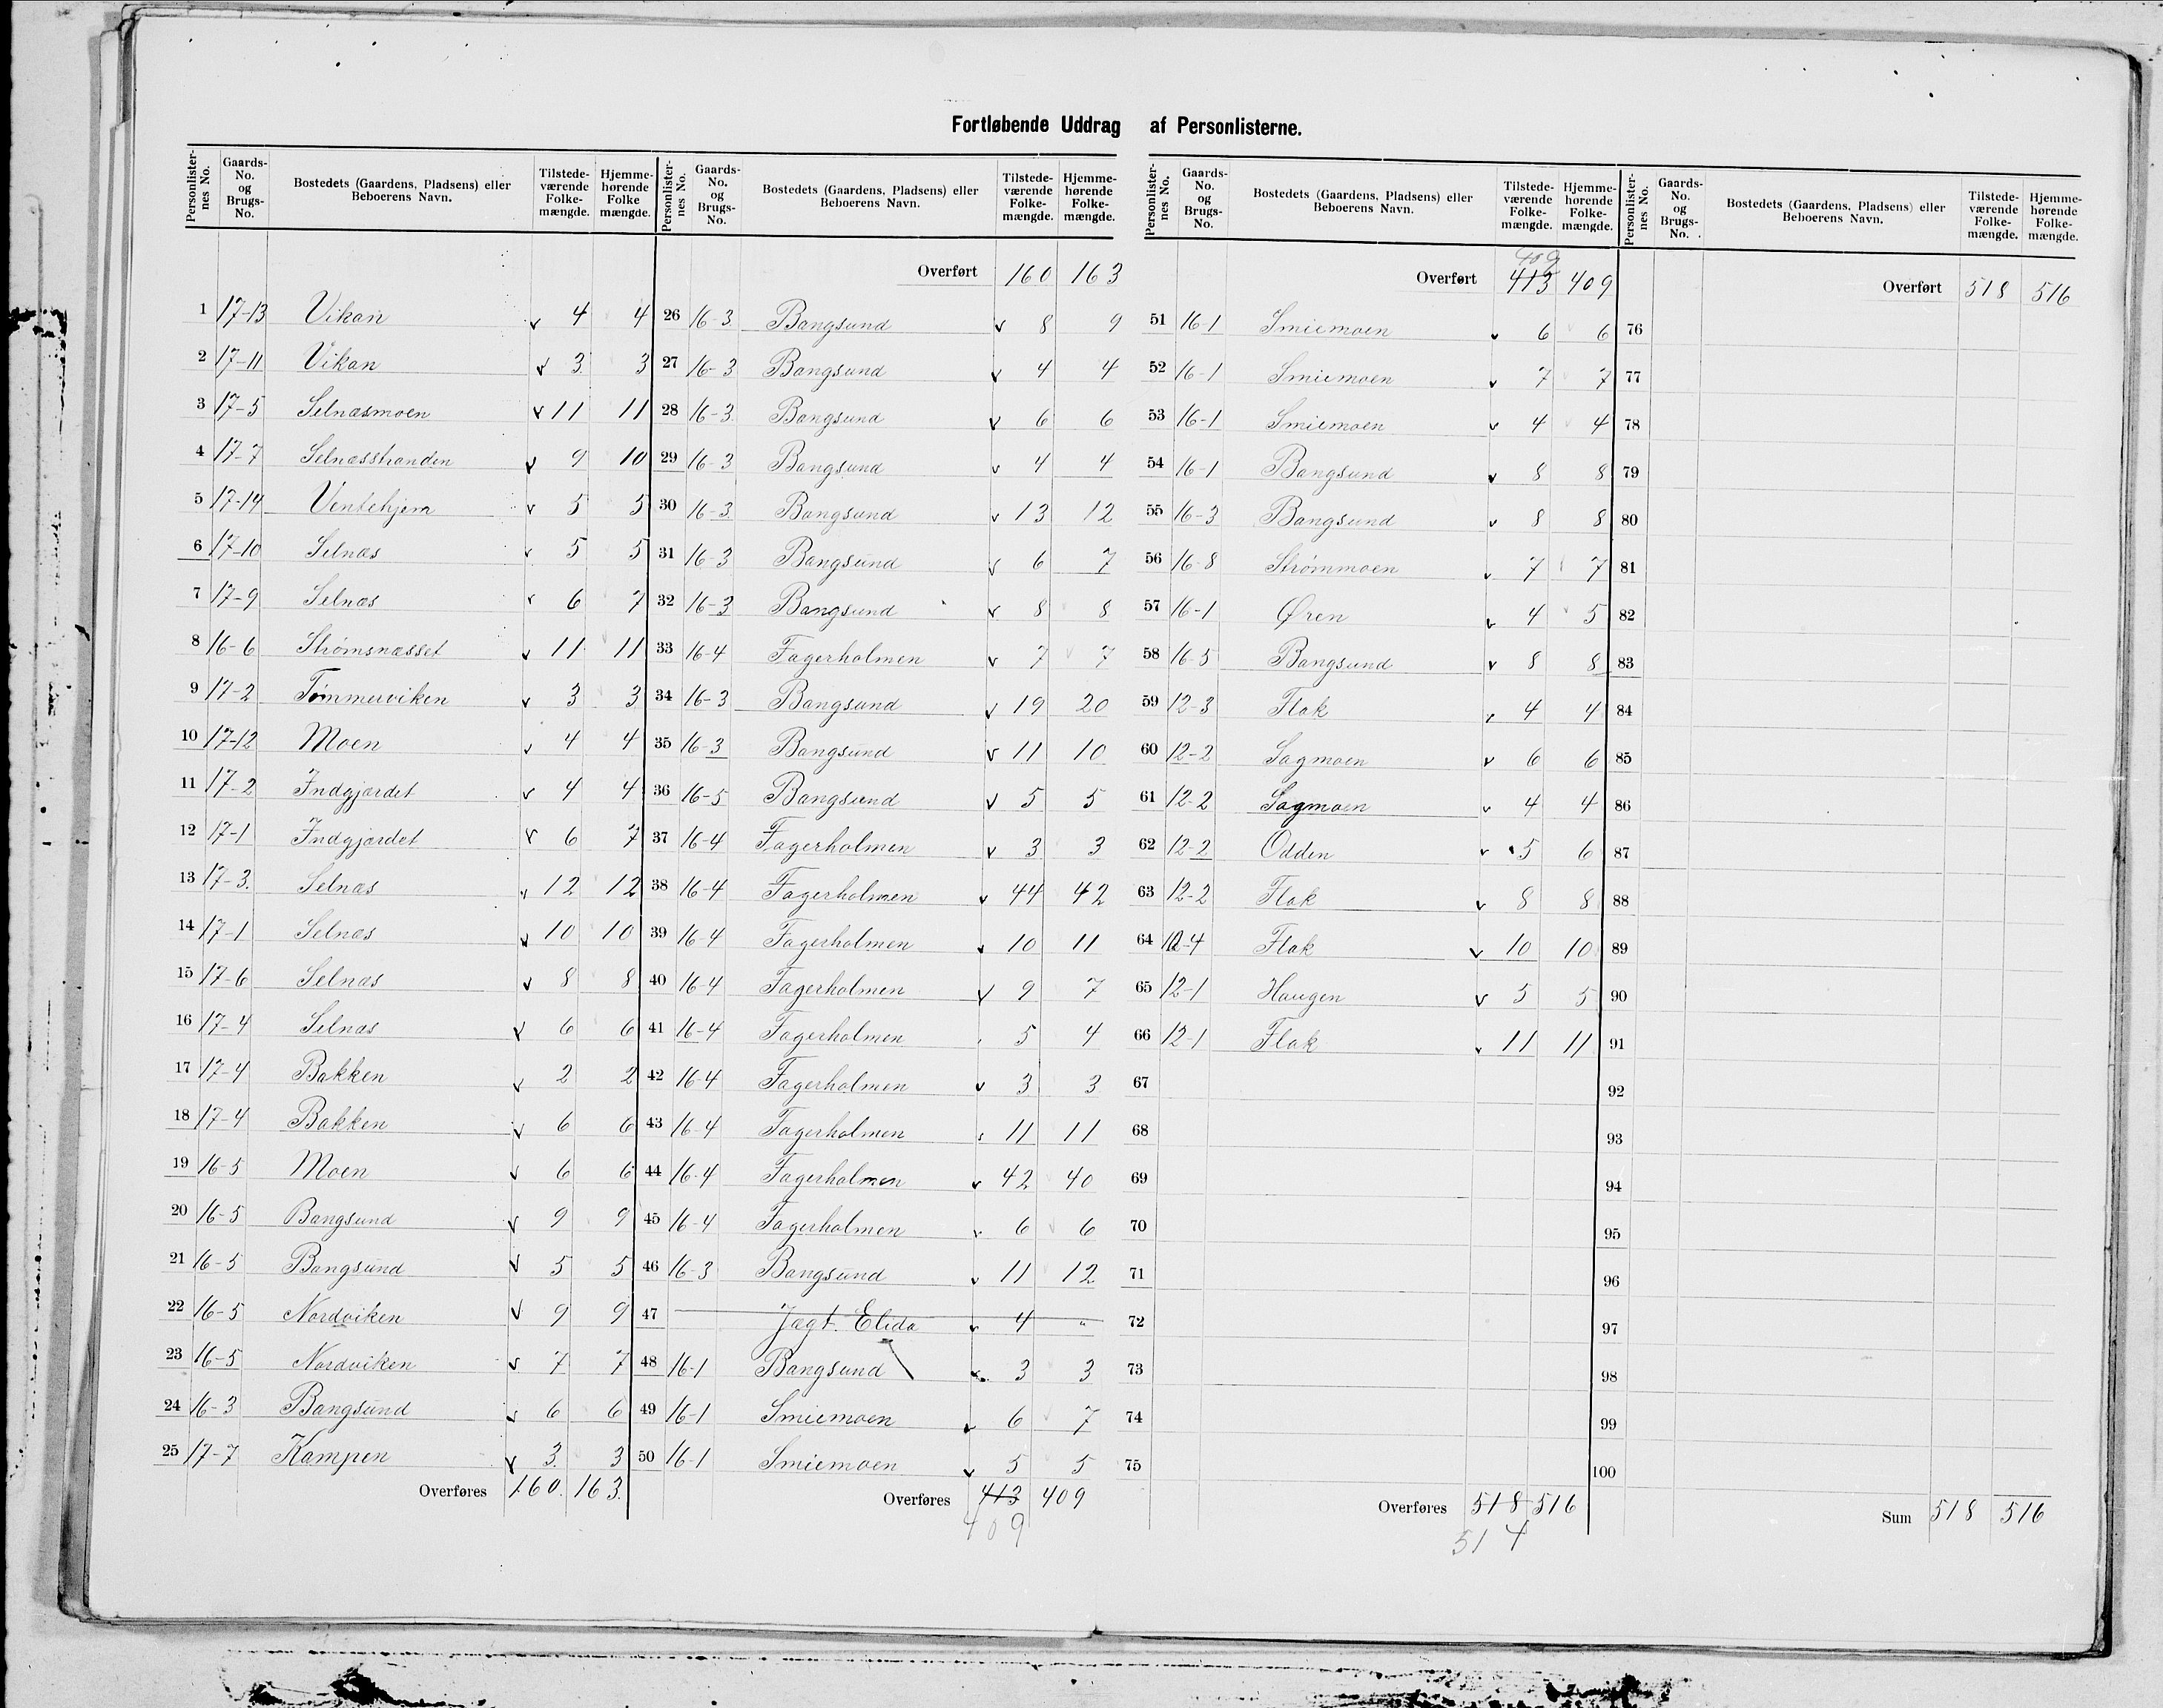 Fortløbende Uddrag af Personlisterne.
Personlisternes No. | Gaards-No. og Brugs-No. | Bostedets (Gaardens, Pladsens) eller Beboerens Navn. | Tilstedeværende Folkemængde. | Hjemmehørende Folke mængde.
1 17-13 Vikan v 4 4
2 17-11 Vikan v 3 3
3 17-5 Selnæsmoen v 11 11
4 17-7 Selnæsstranden v 9 10
5 17-14 Ventehjem v 5 5
6 17-10 Selnæs v 5 5
7 17-9 Selnæs v 6 7
8 16-6 Strømsnæsset v 11 11
9 17-2 Tømmerviken v 3 3
10 17-12 Moen v 4 4
11 17-2 Indgjærdet v 4 4
12 17-1 Indgjærdet v 6 7
13 17-3. Selnæs v 12 12
14 17-1 Selnæs v 10 10
15 17-6 Selnæs v 8 8
16 17-4 Selnæs v 6 6
17 17-4 Bakken v 2 2
18 17-4 Bakken v 6 6
19 16-5 Moen v 6 6
20 16-5 Bangsund v 9 9
21 16-5 Bangsund v 5 5
22 16-5 Nordviken v 9 9
23 16-5 Nordviken v 7 7
24 16-3 Bangsund v 6 6
25 17-7 Kampen v 3. 3
Overføres 160. 163.
Personlisternes No. | Gaards-No. og Brugs-No. | Bostedets (Gaardens, Pladsens) eller Beboerens Navn. | Tilstedeværende Folkemængde. | Hjemmehørende Folkemængde.
Overført 160 163
26 16-3 Bangsund v 8 9
27 16-3 Bangsund v 4 4
28 16-3 Bangsund v 6 6
29 16-3 Bangsund v 4 4
30 16-3 Bangsund v 13 12
31 16-3 Bangsund v 6 7
32 16-3 Bangsund v 8 8
33 16-4 Fagerholmen v 7 7
34 16-3 Bangsund v 19 20
35 16-3 Bangsund v 11 10
36 16-5 Bangsund v 5 5
37 16-4 Fagerholmen v 3 3
38 16-4 Fagerholmen v 44 42
39 16-4 Fagerholmen v 10 11
40 16-4 Fagerholmen v 9 7
41 16-4 Fagerholmen 5 4
42 16-4 Fagerholmen v 3 3
43 16-4 Fagerholmen 11 11
44 16-4 Fagerholmen v 42 40
45 16-4 Fagerholmen v 6 6
46 16-3 Bangsund v 11 12
47 Jægt. Elida v 4 "
48 16-1 Bangsund v 3 3
49 16-1 Smiemoen v 6 7
50 16-1 Smiemoen v 5 5
Overføres 413 409
409
Personlisternes No. | Gaards-No. og Brugs-No. | Bostedets (Gaardens, Pladsens) eller Beboerens Navn. | Tilstedeværende Folkemængde. | Hjemmehørende Folkemængde.
409
Overført 413 409
51 16-1 Smiemoen v 6 6
52 16-1 Smiemoen v 7 7
53 16-1 Smiemoen v 4 4
54 16-1 Bangsund v 8 8
55 16-3 Bangsund v 8 8
56 16-8 Strømmoen v 7 7
57 16-1 Øren v 4 5
58 16-5 Bangsund v 8 8
59 12-3 Flak v 4 4
60 12-2 Sagmoen v 6 6
61 12-2 Sagmoen v 4 4
62 12-2 Odden v 5 6
63 12-2 Flak v 8 8
64 12-4 Flak v 10 10
65 12-1 Haugen v 5 5
66 12-1 Flak v 11 11
67
68
69
70
71
72
73
74
75
Overføres 518 516
514
Personlisternes No. | Gaards-No. og Brugs-No. | Bostedets (Gaardens, Pladsens) eller Beboerens Navn. | Tilstedeværende Folkemængde. | Hjemmehørende Folkemængde.
Overført 518 516
76
77
78
79
80
81
82
83
84
85
86
87
88
89
90
91
92
93
94
95
96
97
98
99
100
Sum 518 516